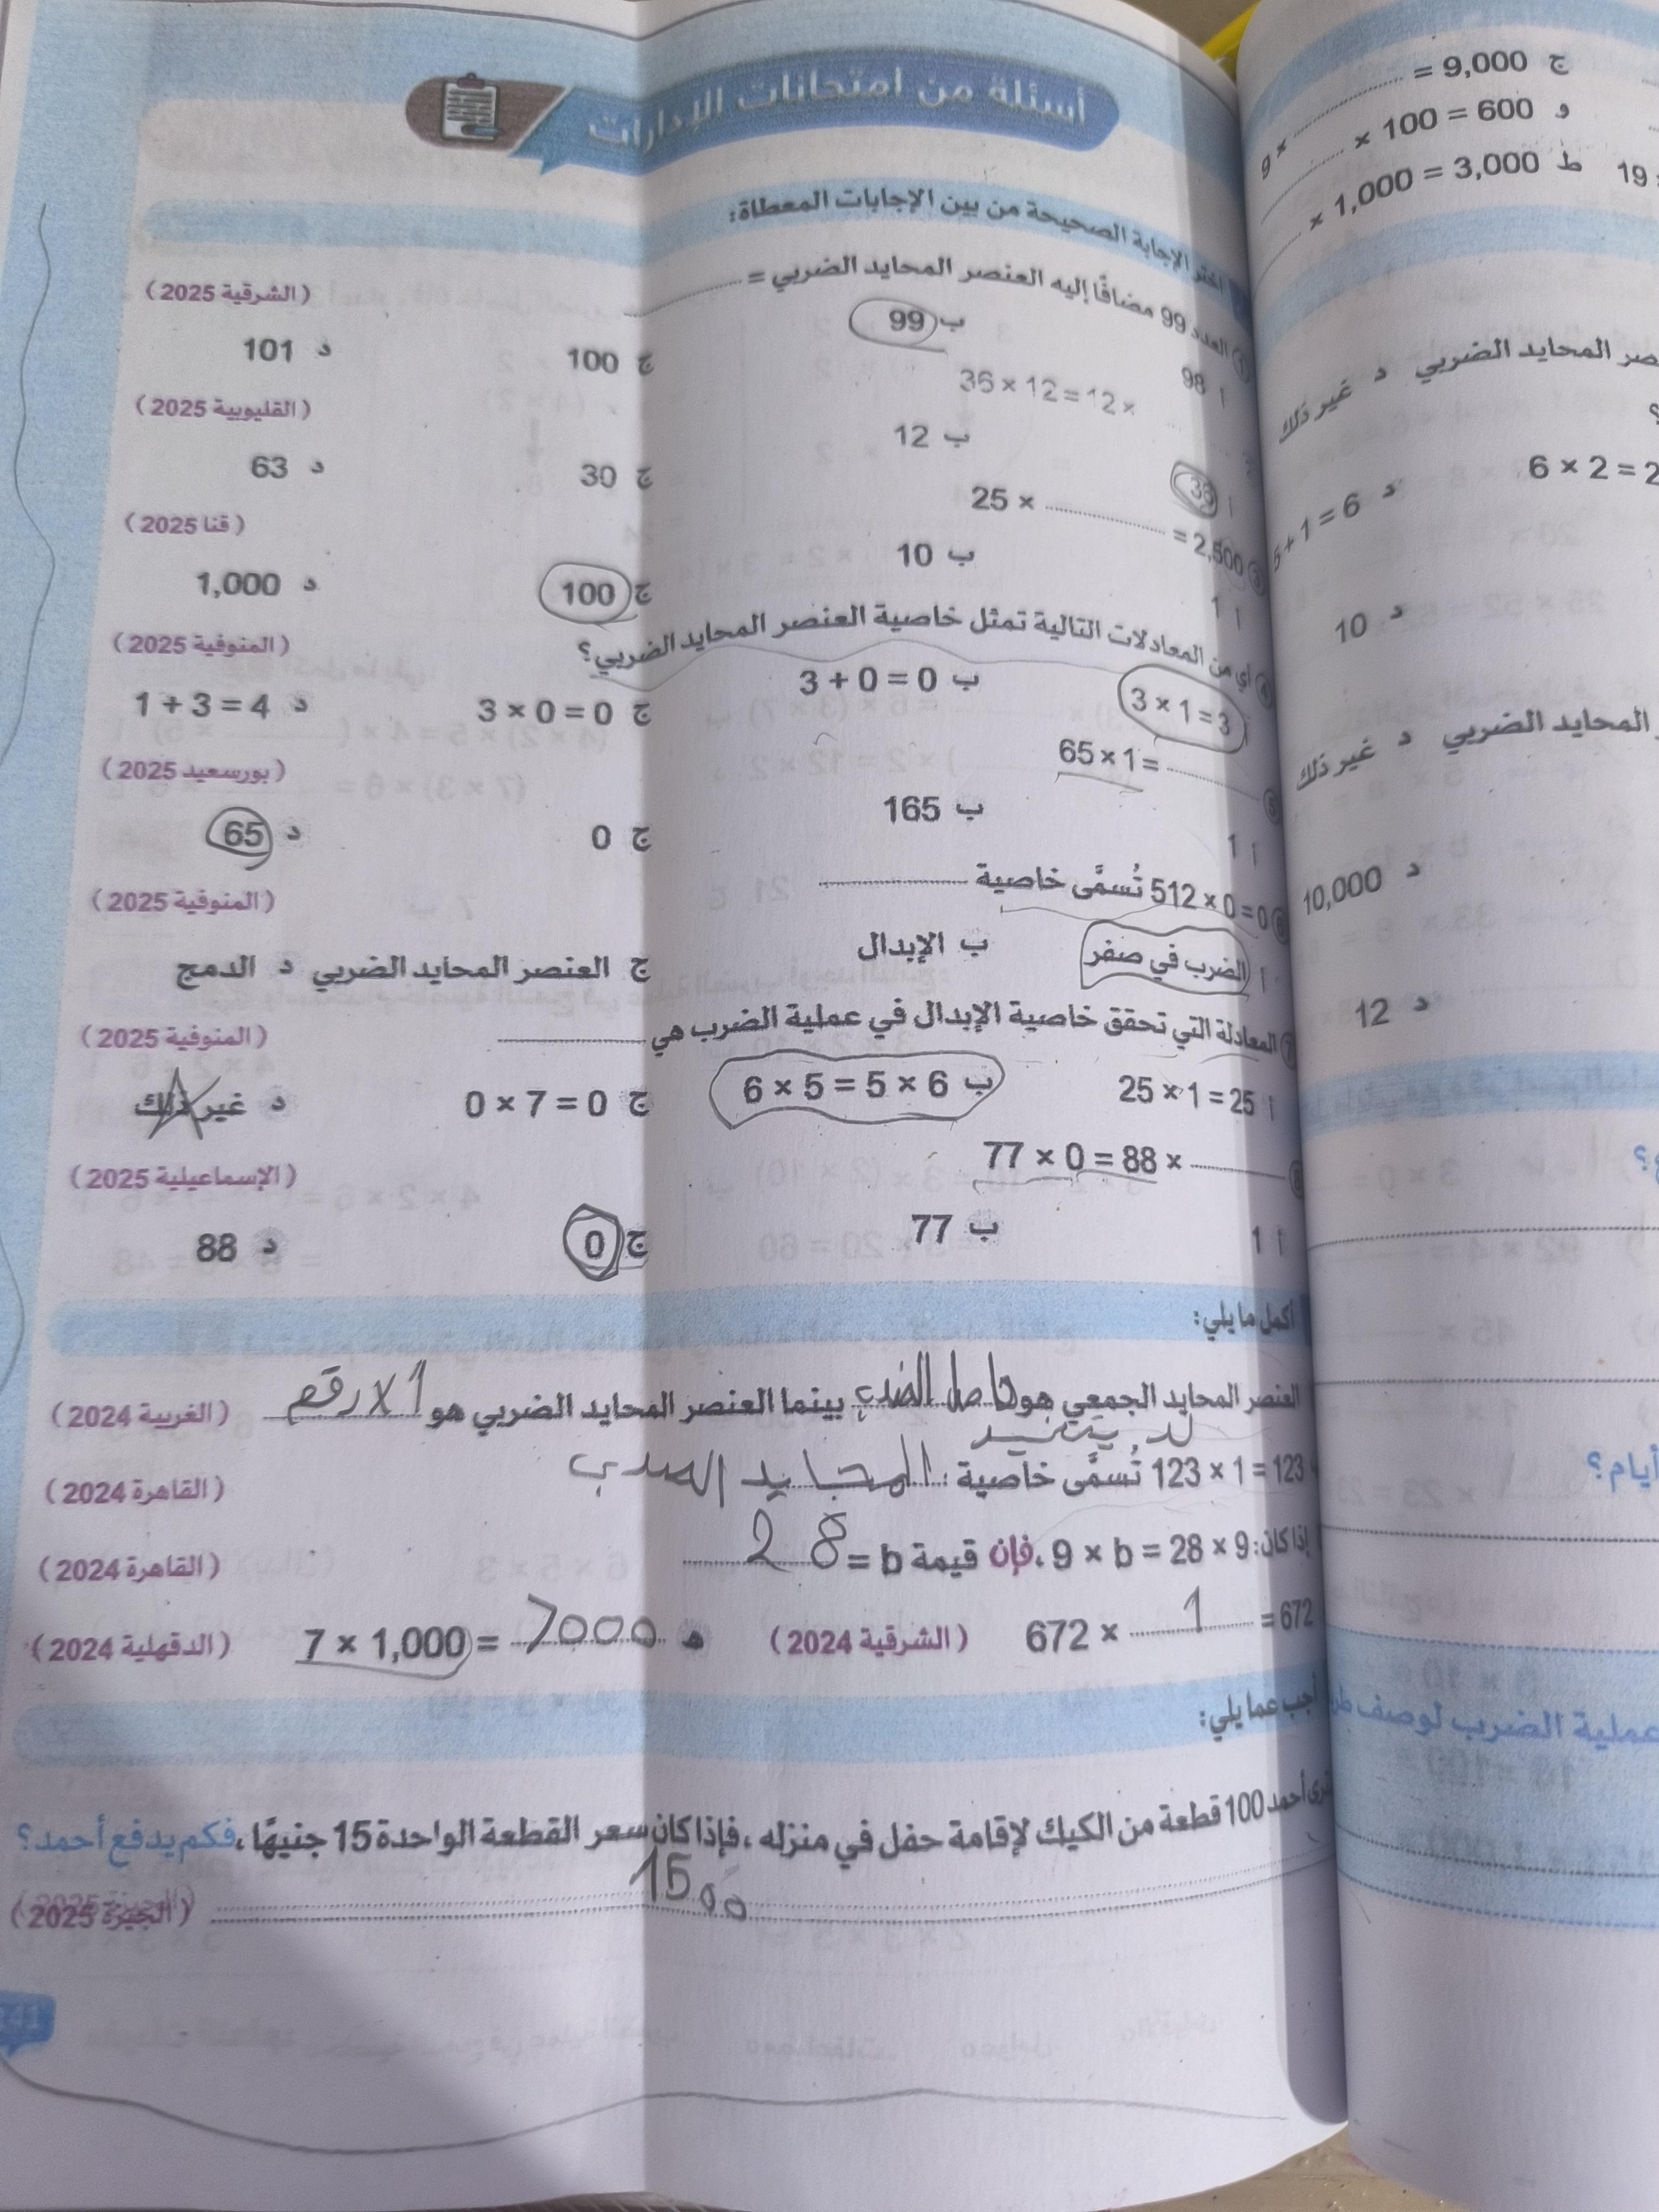 أسئلة من امتحانات الإدارات
اختر الإجابة الصحيحة من بين الإجابات المعطاة:
1 العدد 99 مضافًا إليه العنصر المحايد الضربي = ............ (الشرقية 2025)
أ 98 ب 99 ج 100 د 101
36 × 12 = 12 × ............ (القليوبية 2025)
أ 36 ب 12 ج 30 د 63
3 25 × ............ = 2,500 (قنا 2025)
أ 1 ب 10 ج 100 د 1,000
4 أي من المعادلات التالية تمثل خاصية العنصر المحايد الضربي؟ (المنوفية 2025)
أ 3 × 1 = 3 ب 3 + 0 = 0 ج 3 × 0 = 0 د 1 + 3 = 4
5 65 × 1 = ............ (بورسعيد 2025)
أ 1 ب 165 ج 0 د 65
6 512 × 0 = 0 تُسمَّى خاصية ............ (المنوفية 2025)
أ الضرب في صفر ب الإبدال ج العنصر المحايد الضربي د الدمج
7 المعادلة التي تحقق خاصية الإبدال في عملية الضرب هي ............ (المنوفية 2025)
أ 25 × 1 = 25 ب 6 × 5 = 5 × 6 ج 0 × 7 = 0 د غير ذلك
8 77 × 0 = 88 × ............ (الإسماعيلية 2025)
أ 1 ب 77 ج 0 د 88
أكمل ما يلي:
العنصر المحايد الجمعي هو حاصل الضرب بينما العنصر المحايد الضربي هو 1 X رقم (الغربية 2024)
لا يتغير
123 × 1 = 123 تُسمَّى خاصية المحايد الضربي (القاهرة 2024)
إذا كان: 9 × b = 28 × 9، فإن قيمة b = 28 (القاهرة 2024)
672 × 1 = 672 (الشرقية 2024) هـ 7 × 1,000 = 7000 (الدقهلية 2024)
أجب عما يلي:
أحمد 100 قطعة من الكيك لإقامة حفل في منزله، فإذا كان سعر القطعة الواحدة 15 جنيهًا، فكم يدفع أحمد؟
1500 (الجيزة 2025)
141
ج 9 × ............ = 9,000
و ............ × 100 = 600
ط ............ × 1,000 = 3,000
19
المحايد الضربي د غير ذلك
6 × 2 = 2
د 5 + 1 = 6
د 10
المحايد الضربي د غير ذلك
د 10,000
د 12
أيام؟
عملية الضرب لوصف